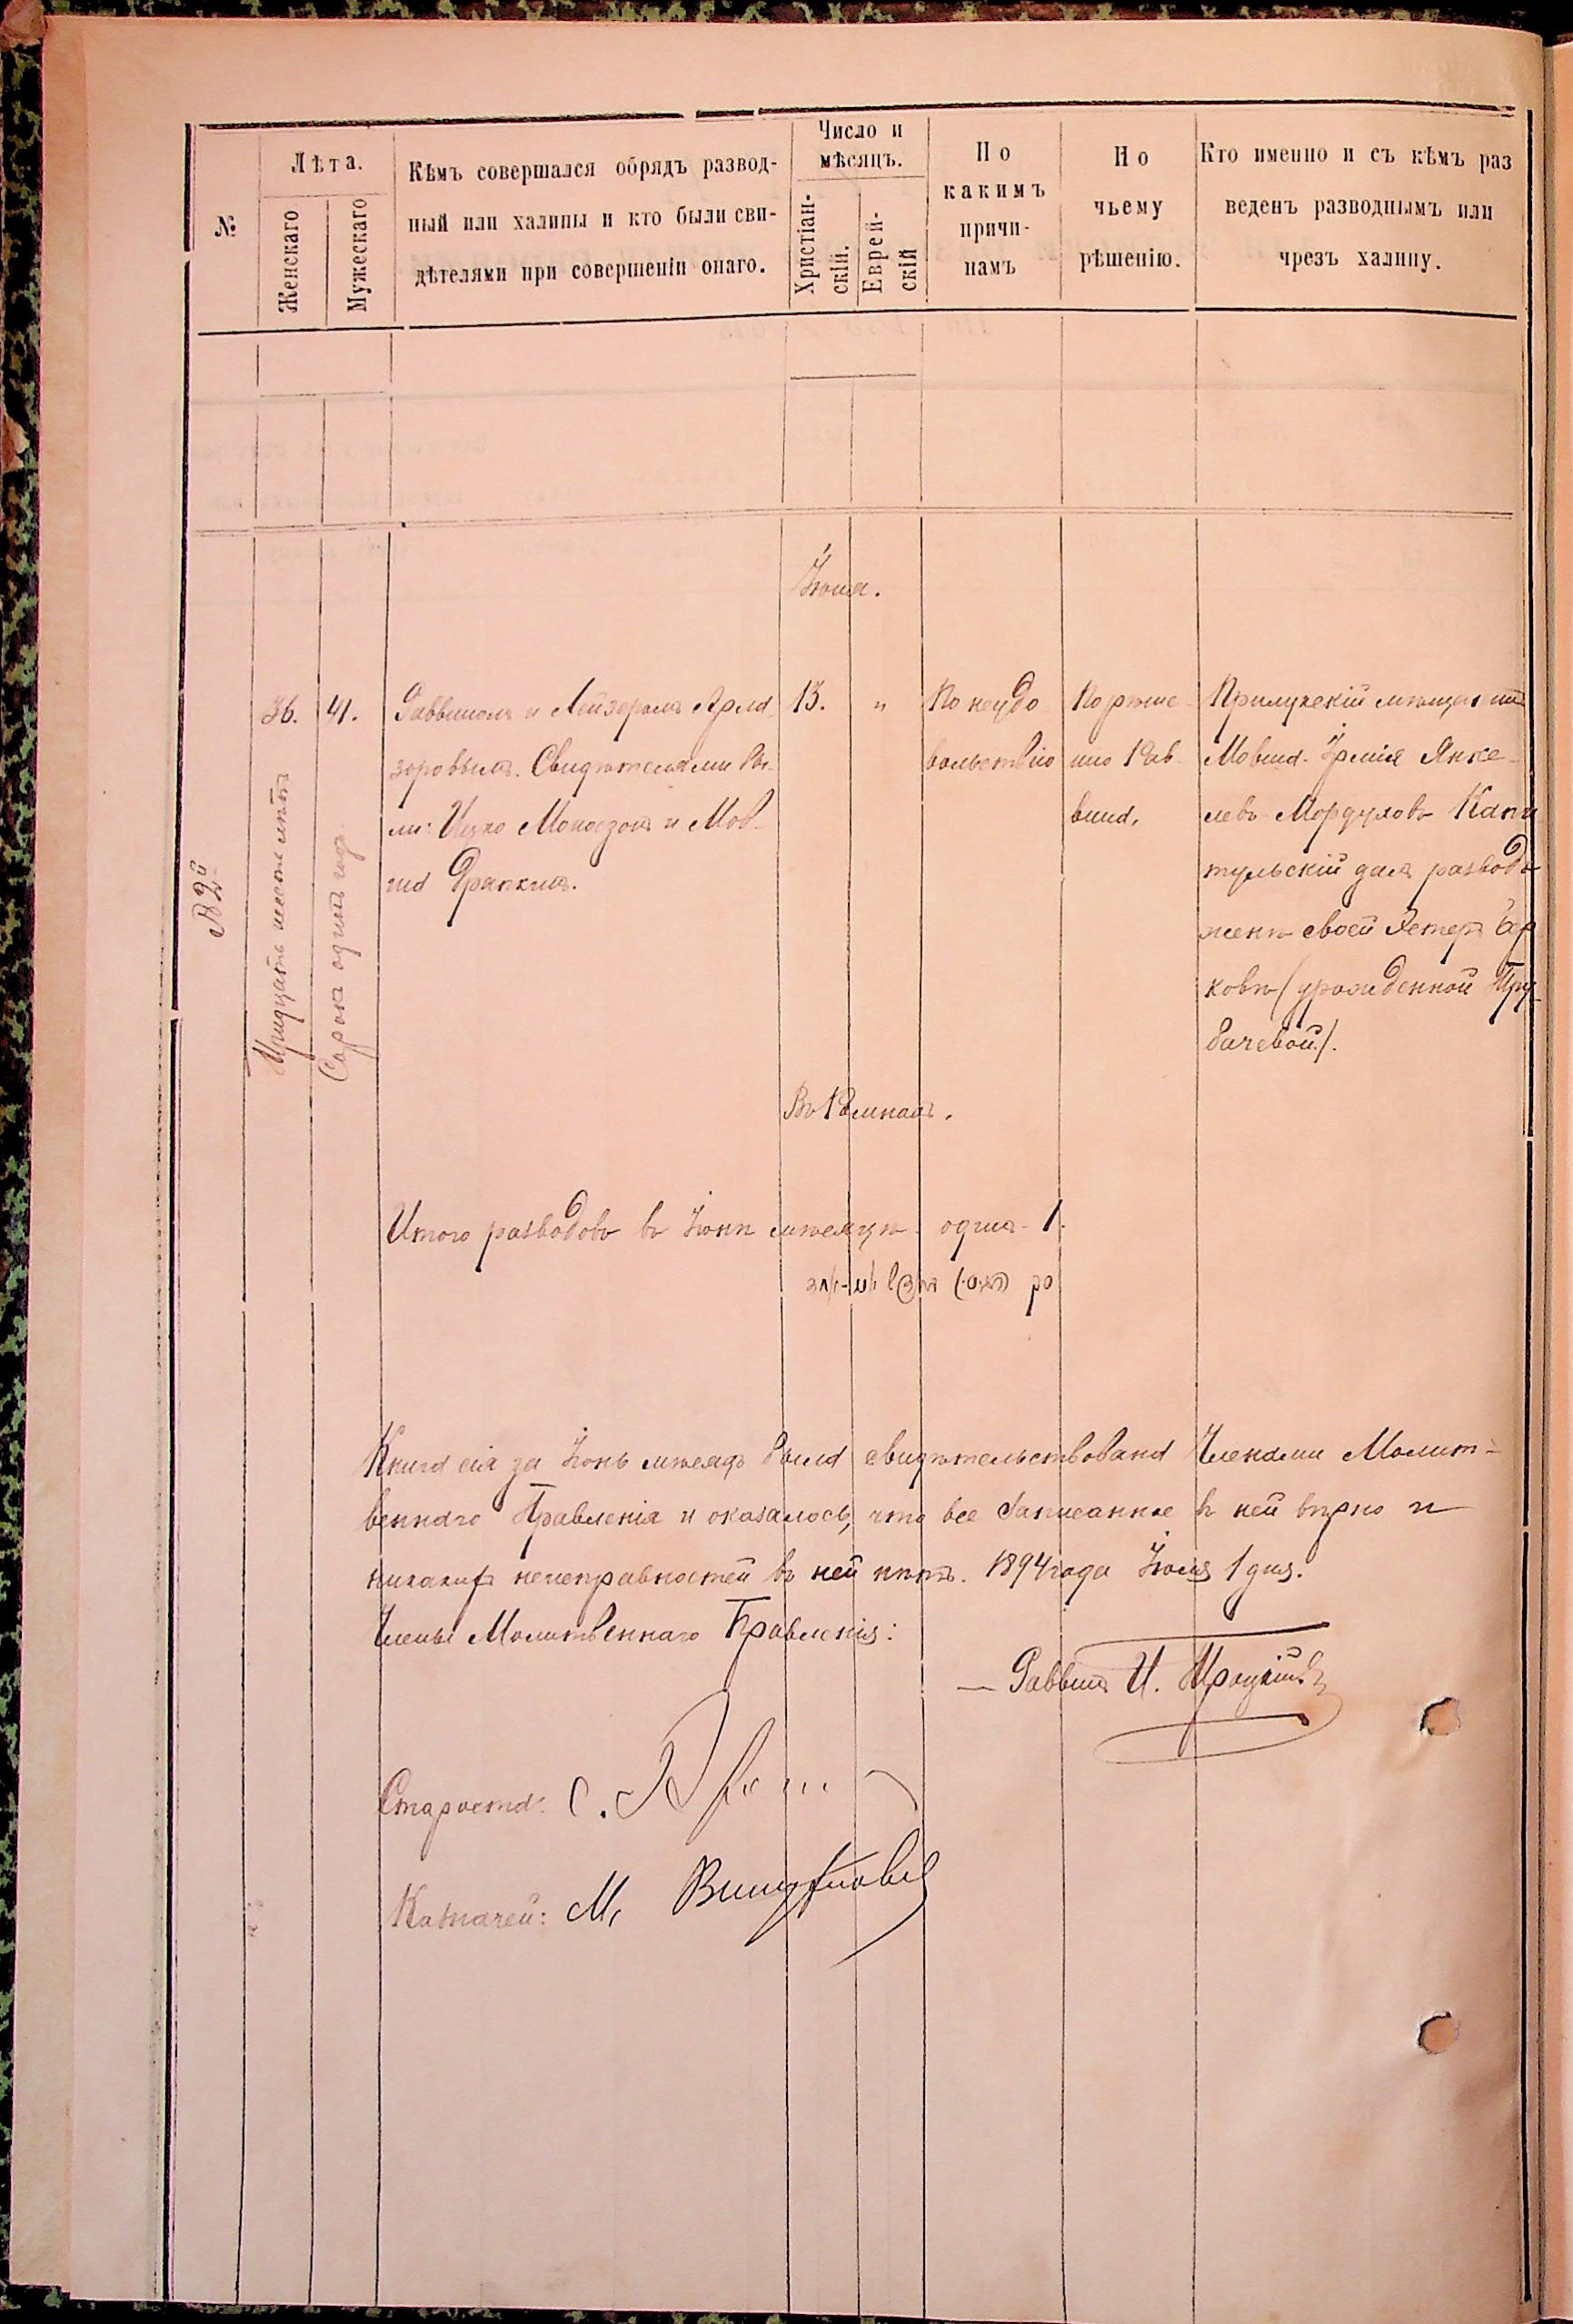 №
Лѣта.
Женскаго
Мужескаго
Кѣмъ совершался обрядъ развод-
ный или халицы и кто были сви-
дѣтелями при совершеніи онаго.
Число и
мѣсяцъ.
Христіан-
скій.
Еврей-
скій
По
какимъ
причи-
намъ
По
чьему
рѣшенію.
Кто именно и съ кѣмъ раз
веденъ разводнымъ или
чрезъ халицу.
Іюня.
№ 2й
36.
Тридцать шесть лѣтъ
41.
Сорокъ одинъ годъ
Раввиномъ и Лейзеромъ
Свидѣтелями бы-
ли: Ицко и Мов-
ша Драпкинъ.
13.
"
По неудо
вольствію
По рѣше-
нію Рав-
вина.
Прилукскій мѣщанинъ
Мовша-Ірмія Янке-
левъ Мордуховъ Капи
тульскій далъ разводъ
женѣ своей Эстеръ Бер
ковѣ (урожденной Тру-
бачевой).
Въ Ромнахъ.
Итого разводовъ въ Іюнѣ мѣсяцѣ одинъ - 1.
Книга сія за Іюнь мѣсяцъ была свидѣтельствована Членами Молит-
веннаго Правленія и оказалось, что все записанное въ ней вѣрно и
никакихъ неисправностей въ ней нѣтъ. 1894 года Іюля 1 дня.
Члены Молитвеннаго Правленія:
— Раввинъ И. Троцкій
Староста: С.
Казначей: М.